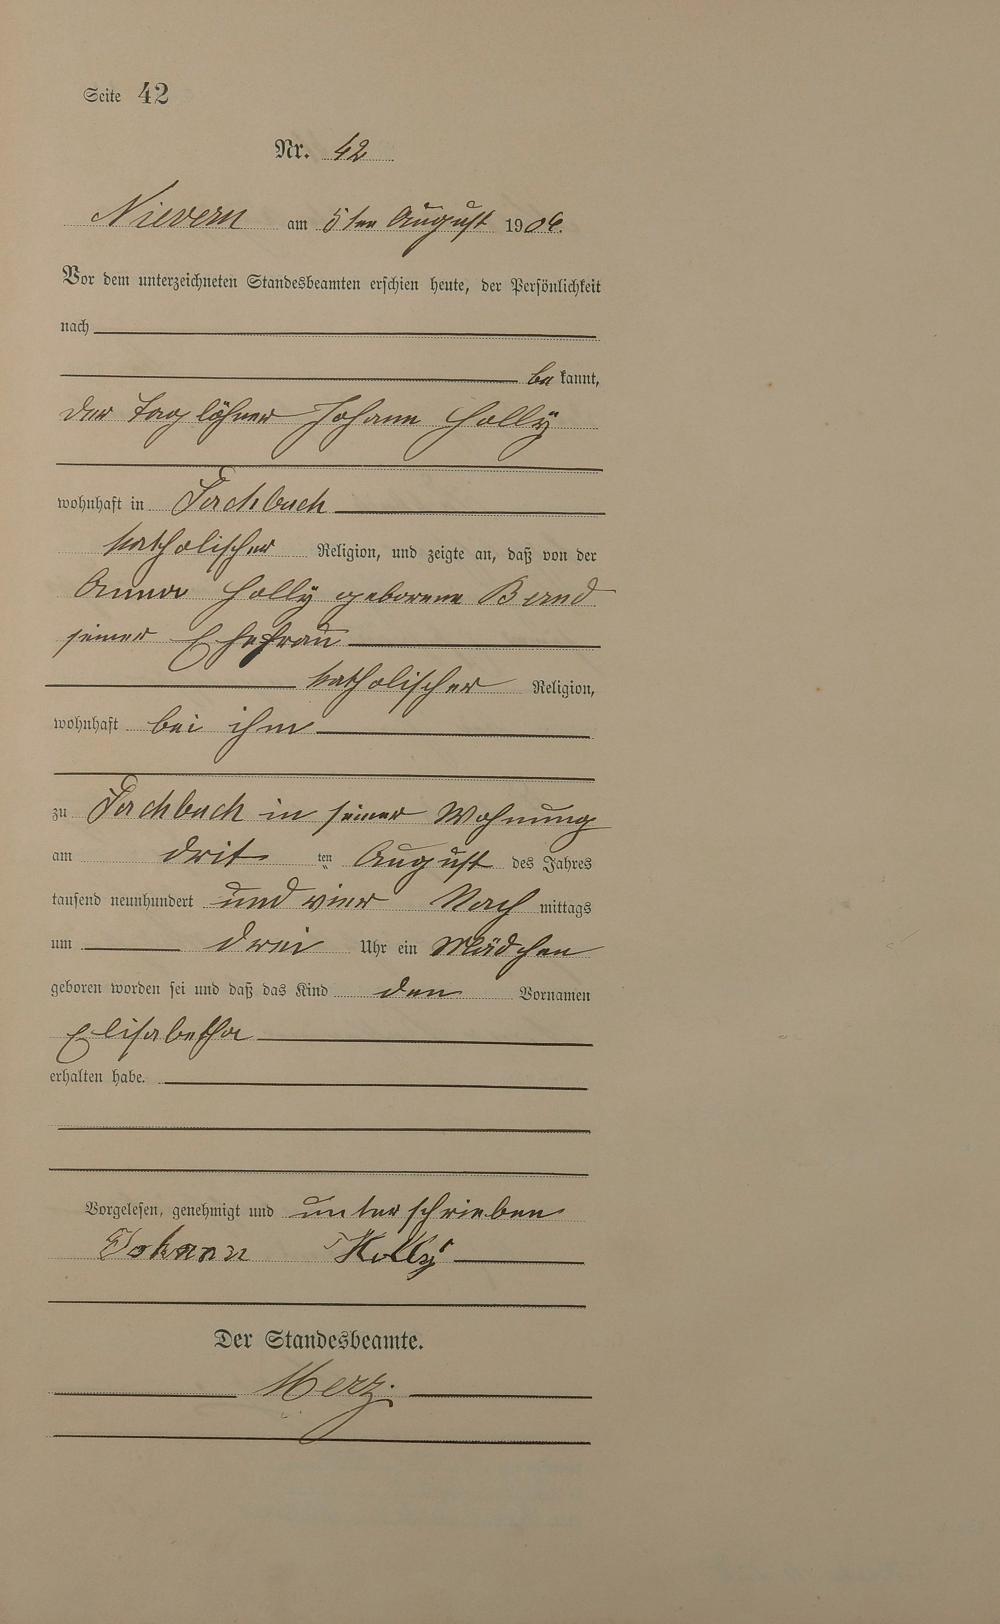 Seite 42
Nr. 42
Nievern am 5ten August 1904.
Vor dem unterzeichneten Standesbeamten erschien heute, der Persönlichkeit
nach
bekannt,
der Taglöhner Johann Holly
wohnhaft in Fachbach
katholischer Religion, und zeigte an, daß von der
Anna Holly geborene Band
seiner Ehefrau
katholischer Religion,
wohnhaft bei ihm
zu Fachbach in seiner Wohnung
am dritten August des Jahres
tausend neunhundert und vier Nachmittags
um drei Uhr ein Mädchen
geboren worden sei und daß das Kind den Vornamen
Elisabetha
erhalten habe.
Vorgelesen, genehmigt und unterschrieben
Johann Holly
Der Standesbeamte.
Merz.